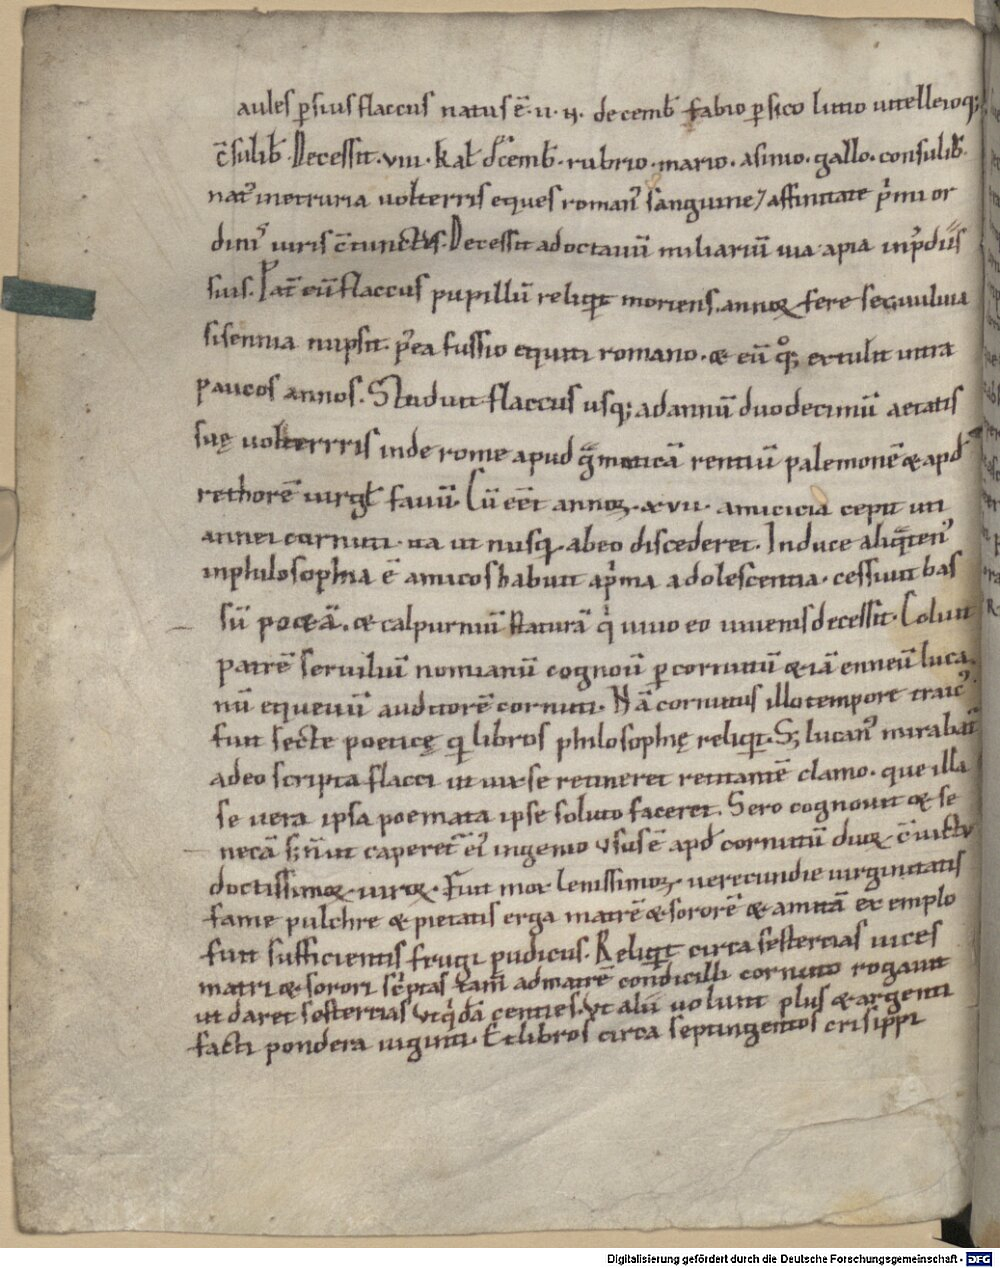 aules ꝑsius flaccus natus ē· ii· n̄· decemb̄ fabio ꝑsico litio uitellioq;
c̄sulib̄· Decessit· viii· kal̄ dc̄emb̄· rubrio· mario· asinio· gallo· consulib̄·
nat᾿ in etruria uolterris eques roman᾿ sanguine / affinitate p̄mi or
dini᾿ uiris c̄iunctus· Decessit ad octauū miliariū uia apia in p̄diis
suis. Pat̄ eū flaccus pupillū reliqt̄ moriens. annoꝝ fere sex fuluia
sisennia nupsit· p̄ea fussio equiti romano· & eū qͦq; extulit intra
paucos annos. Studuit flaccus usq; ad annū duodecimū aetatis
suę uolterrris inde rome apud g̃maticā remiū palemonē & apd̄
rethorē uirgl̄ fauū· Cū eēt annoꝝ· xvii· amicicia cepit uti
annei cornuti· ita ut nusq̄ abeo discederet. Induce aliq̄ten᾿
in philosophia ē amicos habuit ap̄ma adolescentia· cessiuit bas
sū poetā. & calpurniū staturā q̄ uiuo eo iuuenis decessit. Coluit
patrē seruiliū nonianū cognoū ꝑ cornutū & iā enneū luca
nū equeuū auditorē cornuti· Nā cornutus illo tempore traic᾿
fuit secte poeticę q̄ libros philosophię reliqt̄. S; lucan᾿ mirabat᾿
adeo scripta flacci ut uix se retineret recitantē clamo· que illa
se uera ipsa poemata ipse soluto faceret. Sero cognouit & se
necā s; n̄ ut caperet᾿ ei᾿ ingenio usus ē apd̄ cornutū duoꝝ c̄uictu
doctissimoꝝ uiroꝝ· Fuit moꝝ lenissimoꝝ· uerecundie uirginitatis
fame pulchre & pietatis erga matrē & sororē & amitā exemplo
fuit sufficientis frugi pudicus. Reliqt̄ circa sestertias uices
matri & sorori sc̄ptas tam̄ ad matrē condicilli cornuto rogauit
ut daret sestertias ut q̄dā centies. Ut alii uolunt plus & argenti
facti pondera uiginti· Et libros circa septingentos crisippi
Digitalisierung gefördert durch die Deutsche Forschungsgemeinschaft - DFG